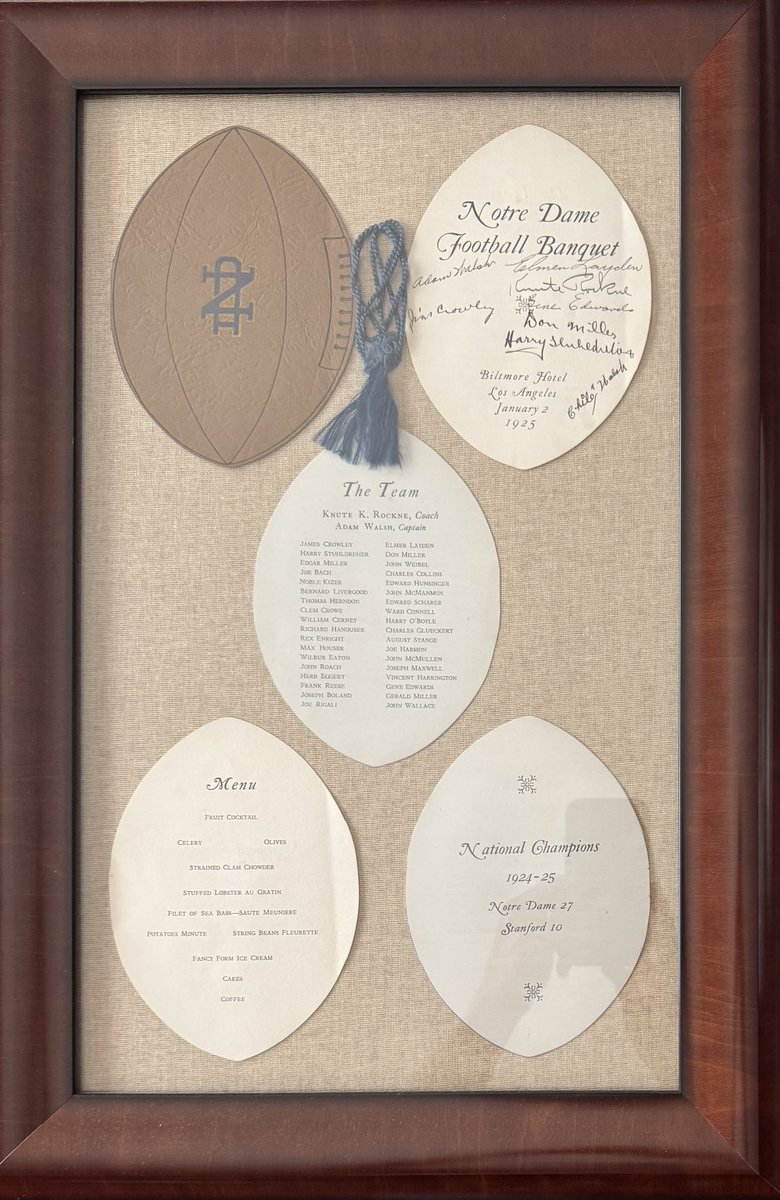 ND
Notre Dame
Football Banquet
Adam Walsh
Elmer Layden
Knute Rockne
Jim Crowley
Gene Edwards
Don Miller
Harry Stuhldreher
Chile Walsh
Biltmore Hotel
Los Angeles
January 2
1925
The Team
KNUTE K. ROCKNE, Coach
ADAM WALSH, Captain
JAMES CROWLEY
HARRY STUHLDREHER
EDGAR MILLER
JOE BACH
NOBLE KIZER
BERNARD LIVERGOOD
THOMAS HERNDON
CLEM CROWE
WILLIAM CERNEY
RICHARD HANOUSEK
REX ENRIGHT
MAX HOUSER
WILBUR EATON
JOHN ROACH
HERB EGGERT
FRANK REESE
JOSEPH BOLAND
JOE RIGALI
ELMER LAYDEN
DON MILLER
JOHN WEIBEL
CHARLES COLLINS
EDWARD HUNSINGER
JOHN MCMANMON
EDWARD SCHARER
WARD CONNELL
HARRY O'BOYLE
CHARLES GLUECKERT
AUGUST STANGE
JOE HARMON
JOHN MCMULLEN
JOSEPH MAXWELL
VINCENT HARRINGTON
GENE EDWARDS
GERALD MILLER
JOHN WALLACE
Menu
FRUIT COCKTAIL
CELERY OLIVES
STRAINED CLAM CHOWDER
STUFFED LOBSTER AU GRATIN
FILET OF SEA BASS—SAUTE MEUNIERE
POTATOES MINUTE STRING BEANS FLEURETTE
FANCY FORM ICE CREAM
CAKES
COFFEE
National Champions
1924-25
Notre Dame 27
Stanford 10